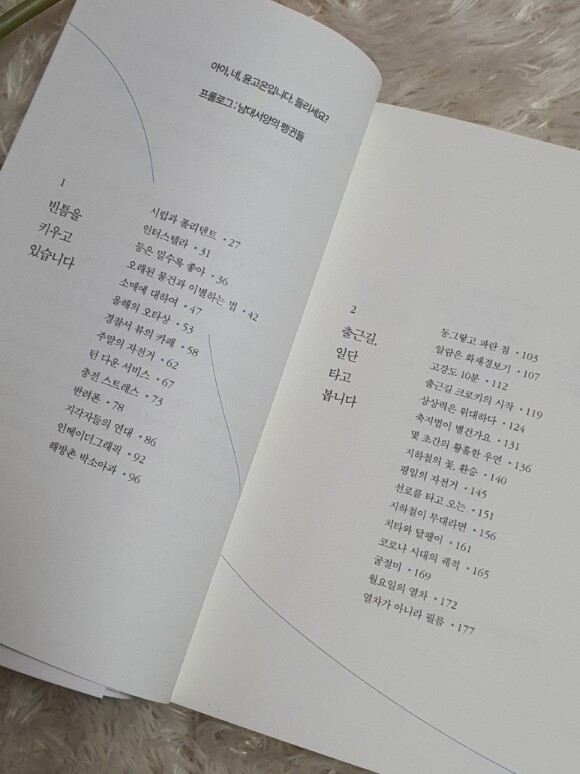 아아, 네, 윤고은입니다. 들리세요?
프롤로그 : 남대서양의 펭귄들
1
빈틈을
키우고
있습니다
시럽과 폴리덴트 • 27
인터스텔라 • 31
등은 밀수록 좋아 • 36
오래된 물건과 이별하는 법 • 42
소매에 대하여 • 47
올해의 오타상 • 53
경찰서 뷰의 카페 • 58
주말의 자전거 • 62
턴 다운 서비스 • 67
충전 스트레스 • 73
반려폰 • 78
지각자들의 연대 • 86
인베이더그래픽 • 92
해방촌 박소아과 • 96
2
출근길,
일단
타고
봅니다
동그랗고 파란 점 • 103
알람은 화재경보기 • 107
고강도 10분 • 112
출근길 크로키의 시작 • 119
상상력은 위대하다 • 124
축지법이 별건가요 • 131
몇 초간의 황홀한 우연 • 136
지하철의 꽃, 환승 • 140
평일의 자전거 • 145
선로를 타고 오는 • 151
지하철이 무대라면 • 156
치타와 달팽이 • 161
코로나 시대의 궤적 • 165
귤철미 • 169
월요일의 열차 • 172
열차가 아니라 필름 • 177